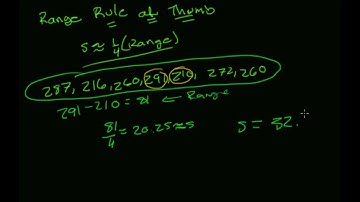 Range Rule of Thumb
s ≈ 1/4 (Range)
287, 216, 260, 291, 210, 272, 260
291 - 210 = 81 ← Range
81/4 = 20.25 ≈ s s = 32.